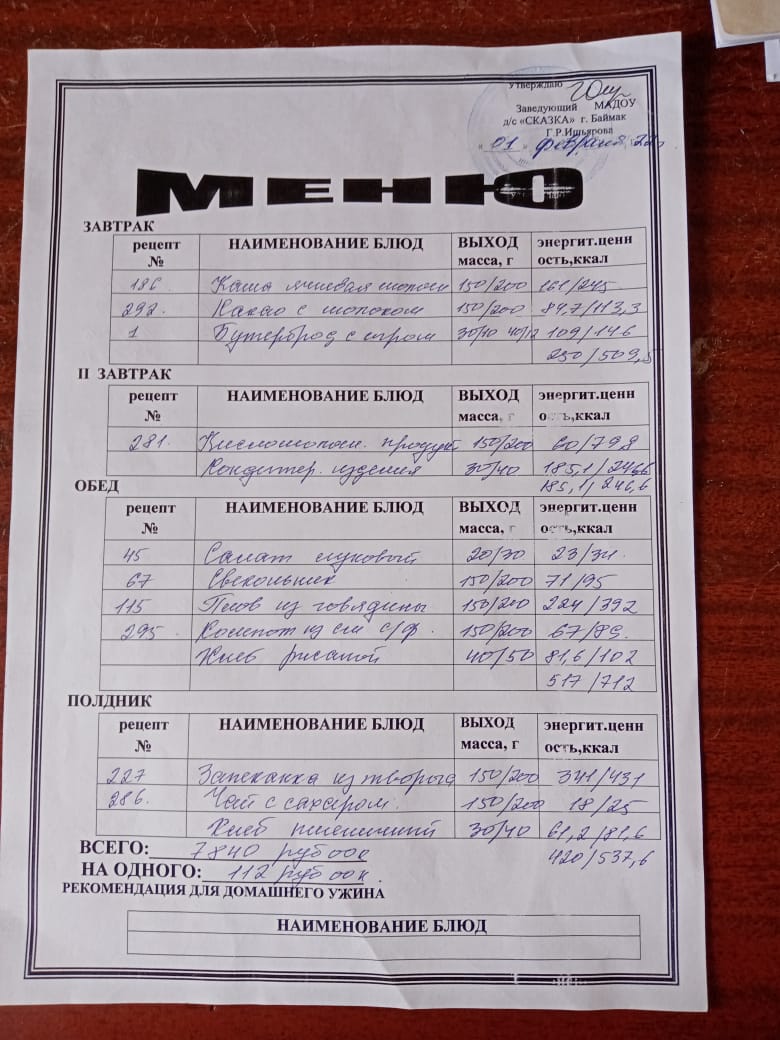 Утверждаю
Заведующий МАДОУ
д/с «СКАЗКА» г. Баймак
Г.Р.Ишьярова
« 01 » февраля 22г.
МЕНЮ
ЗАВТРАК
рецепт № НАИМЕНОВАНИЕ БЛЮД ВЫХОД масса, г энергит.ценн ость,ккал
186 Каша ячневая молочн 150/200 161/245
292. Какао с молоком 150/200 84,7/113,3
1 Бутерброд с сыром 30/10 40/12 109/146
250/509,5
II ЗАВТРАК
рецепт № НАИМЕНОВАНИЕ БЛЮД ВЫХОД масса, г энергит.ценн ость,ккал
281. Кисломолочн. продукт 150/200 60/79,8
Кондитер. изделия 30/40 185,1/246,6
185,1/246,6
ОБЕД
рецепт № НАИМЕНОВАНИЕ БЛЮД ВЫХОД масса, г энергит.ценн ость,ккал
45 Салат луковый 20/30 23/34.
67 Свекольник 150/200 71/95
115 Плов из говядины 150/200 224/392
295. Компот из см с/ф. 150/200 67/89.
Хлеб ржаной 40/50 81,6/102
517/712
ПОЛДНИК
рецепт № НАИМЕНОВАНИЕ БЛЮД ВЫХОД масса, г энергит.ценн ость,ккал
227 Запеканка из творога 150/200 341/431
286. Чай с сахаром. 150/200 18/25
Хлеб пшеничный 30/40 61,2/81,6
420/537,6
ВСЕГО: 7840 руб 00к
НА ОДНОГО: 112 руб 00к.
РЕКОМЕНДАЦИЯ ДЛЯ ДОМАШНЕГО УЖИНА
НАИМЕНОВАНИЕ БЛЮД